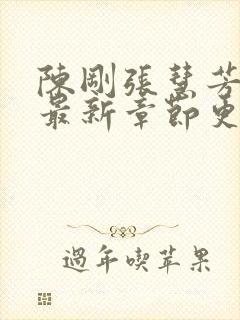 陳剛張慧芳
最新章節更
過年喫苹果